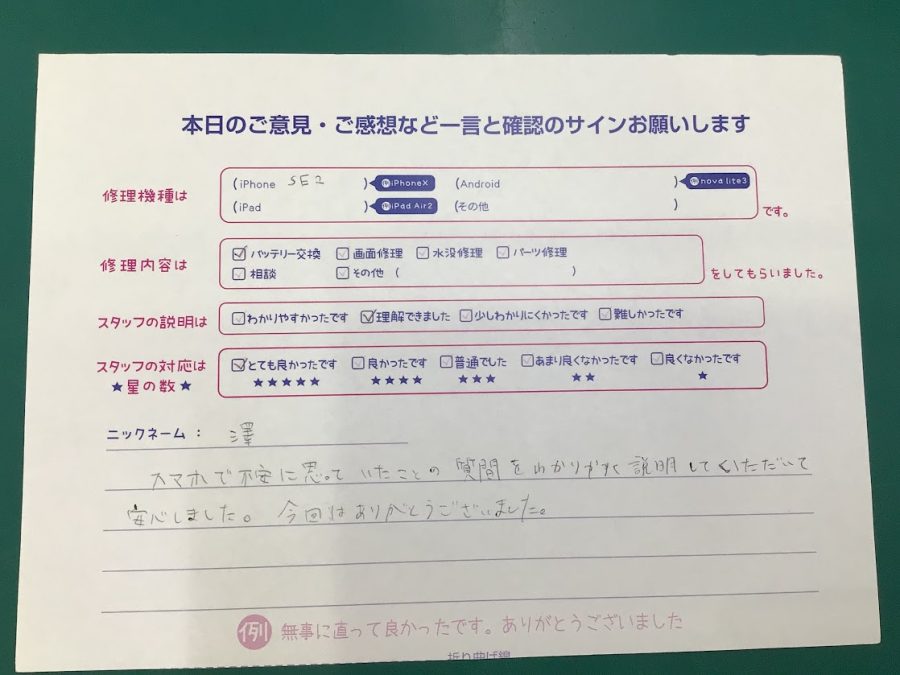 本日のご意見・ご感想など一言と確認のサインお願いします
修理機種は (iPhone SE2 ) 例iPhoneX (Android ) 例nova lite3
(iPad ) 例iPad Air2 (その他 ) です。
修理内容は ☑バッテリー交換 □画面修理 □水没修理 □パーツ修理
□相談 □その他 ( ) をしてもらいました。
スタッフの説明は □わかりやすかったです ☑理解できました □少しわかりにくかったです □難しかったです
スタッフの対応は ☑とても良かったです □良かったです □普通でした □あまり良くなかったです □良くなかったです
★星の数★ ★★★★★ ★★★★ ★★★ ★★ ★
ニックネーム： 澤
スマホで不安に思っていたことの質問をわかりやすく説明していただいて
安心しました。今回はありがとうございました。
例 無事に直って良かったです。ありがとうございました
折り曲げ線